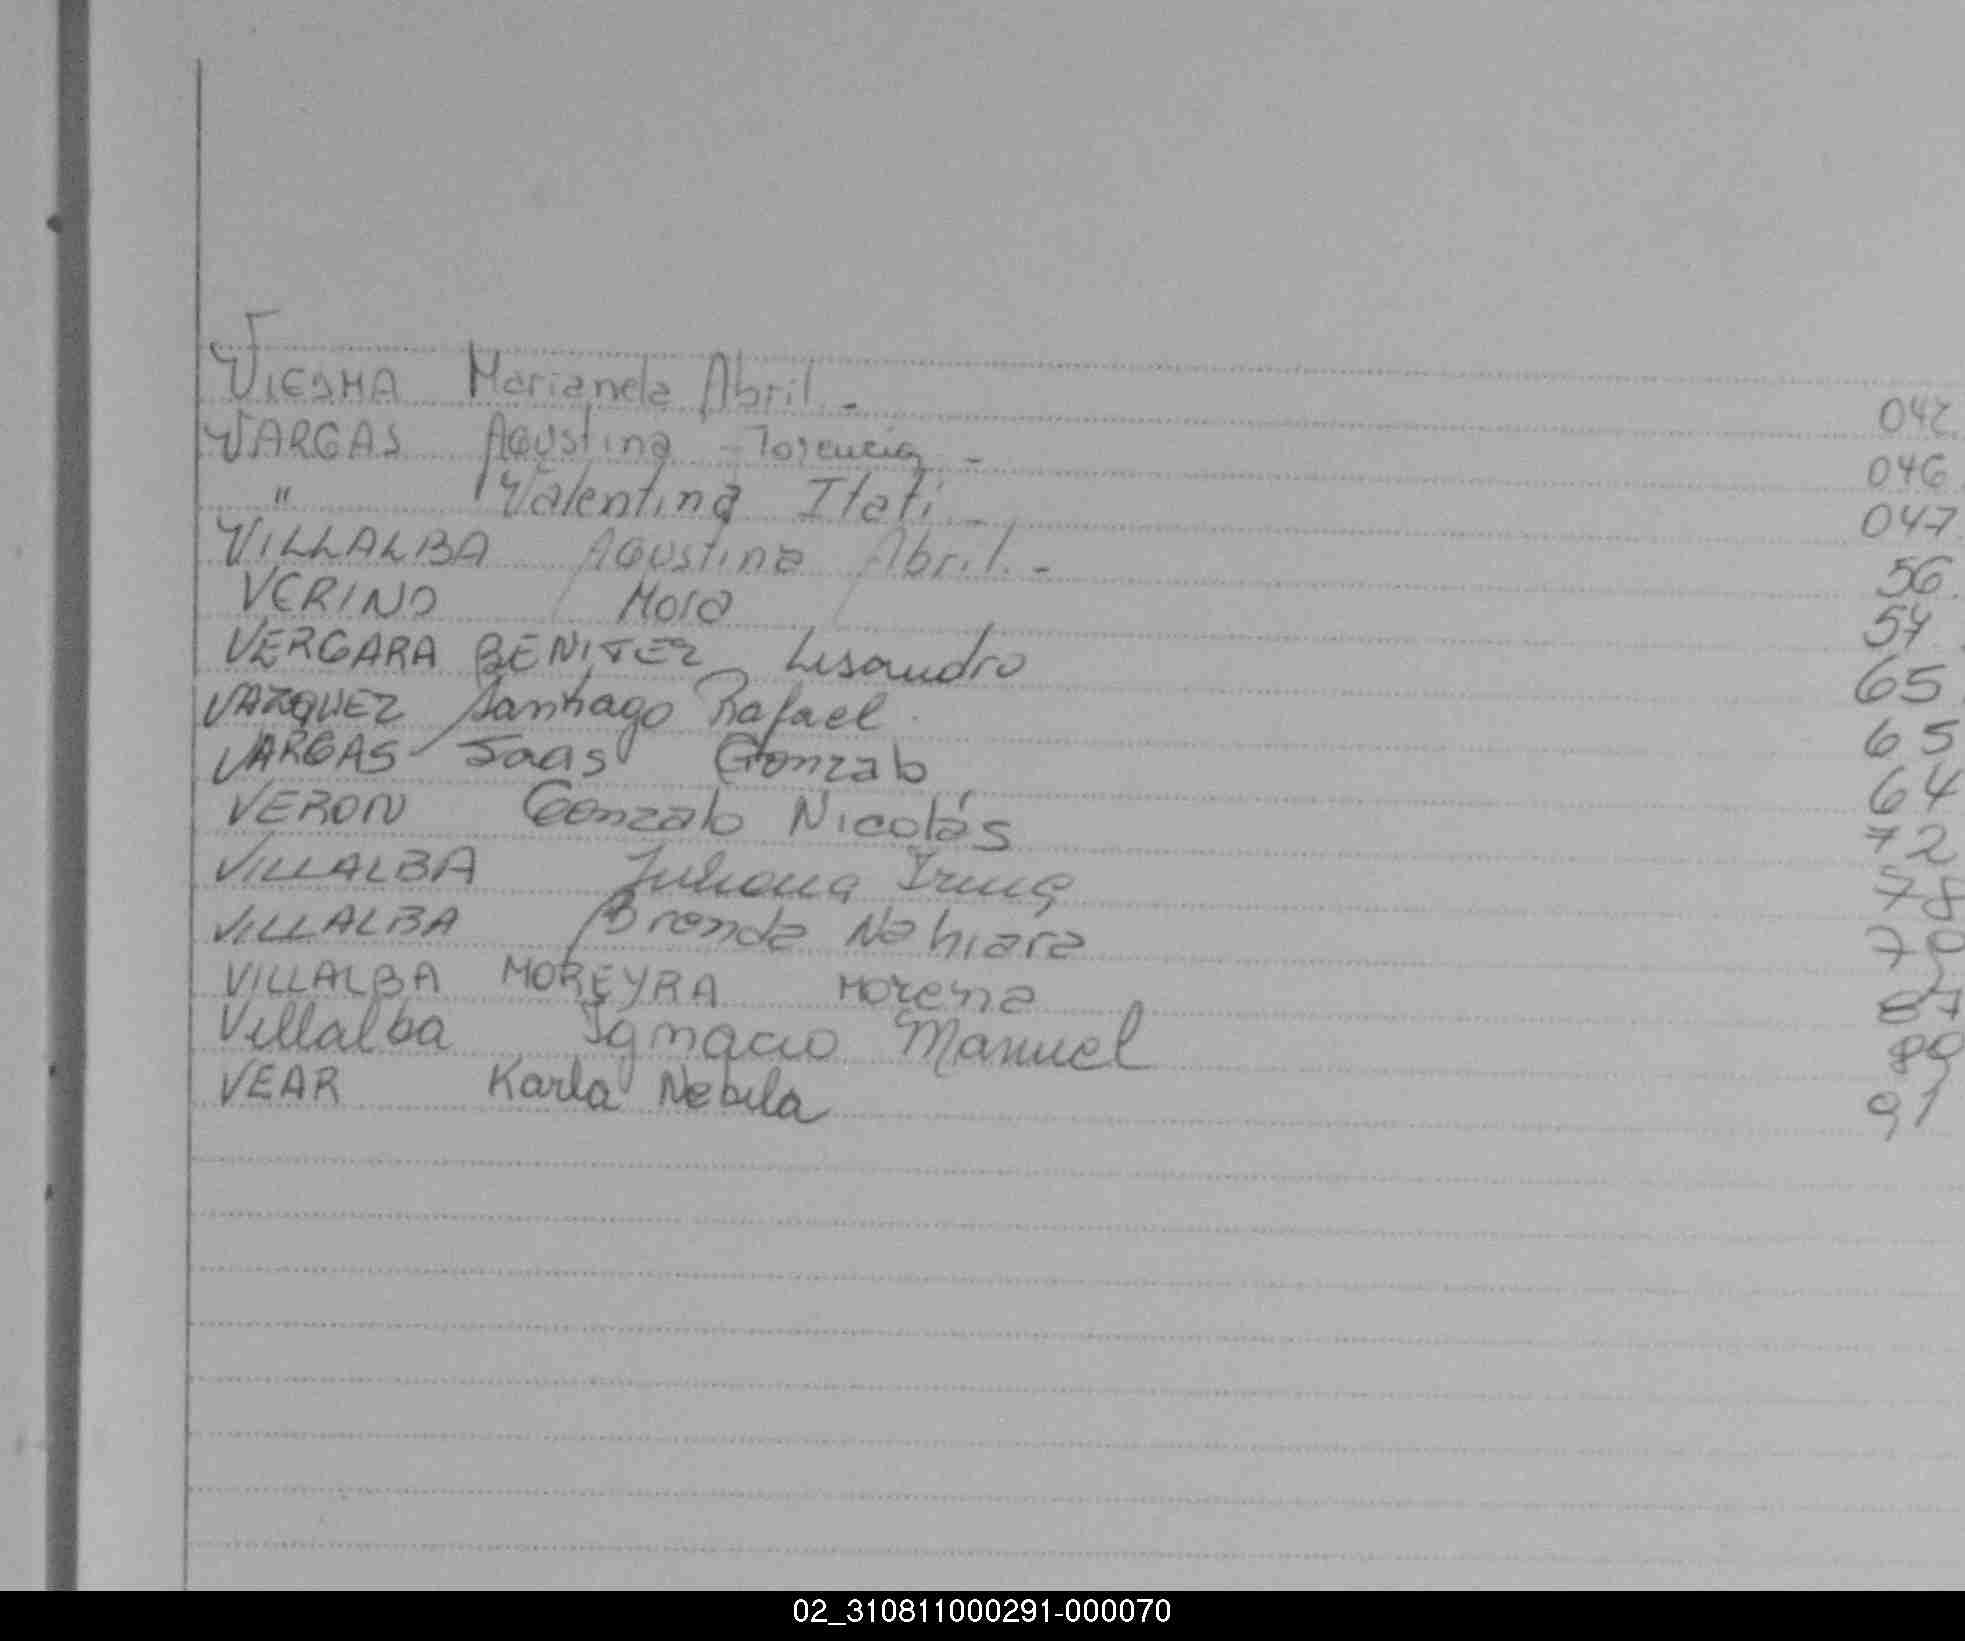 VIESMA Marianela Abril - 042
VARGAS Agustina Florencia - 046
" Valentina Itati - 047
VILLALBA Agustina Abril. - 56
VERINO Mora 57
VERGARA BENITEZ Lisandro 65
VAZQUEZ Santiago Rafael 65
VARGAS Joas Gonzalo 64
VERON Gonzalo Nicolás 72
VILLALBA Juliana Irina 78
VILLALBA Brenda Nahiara 79
VILLALBA MOREYRA Morena 87
Villalba Ignacio Manuel 89
VEAR Karla Nebila 91
02_310811000291-000070